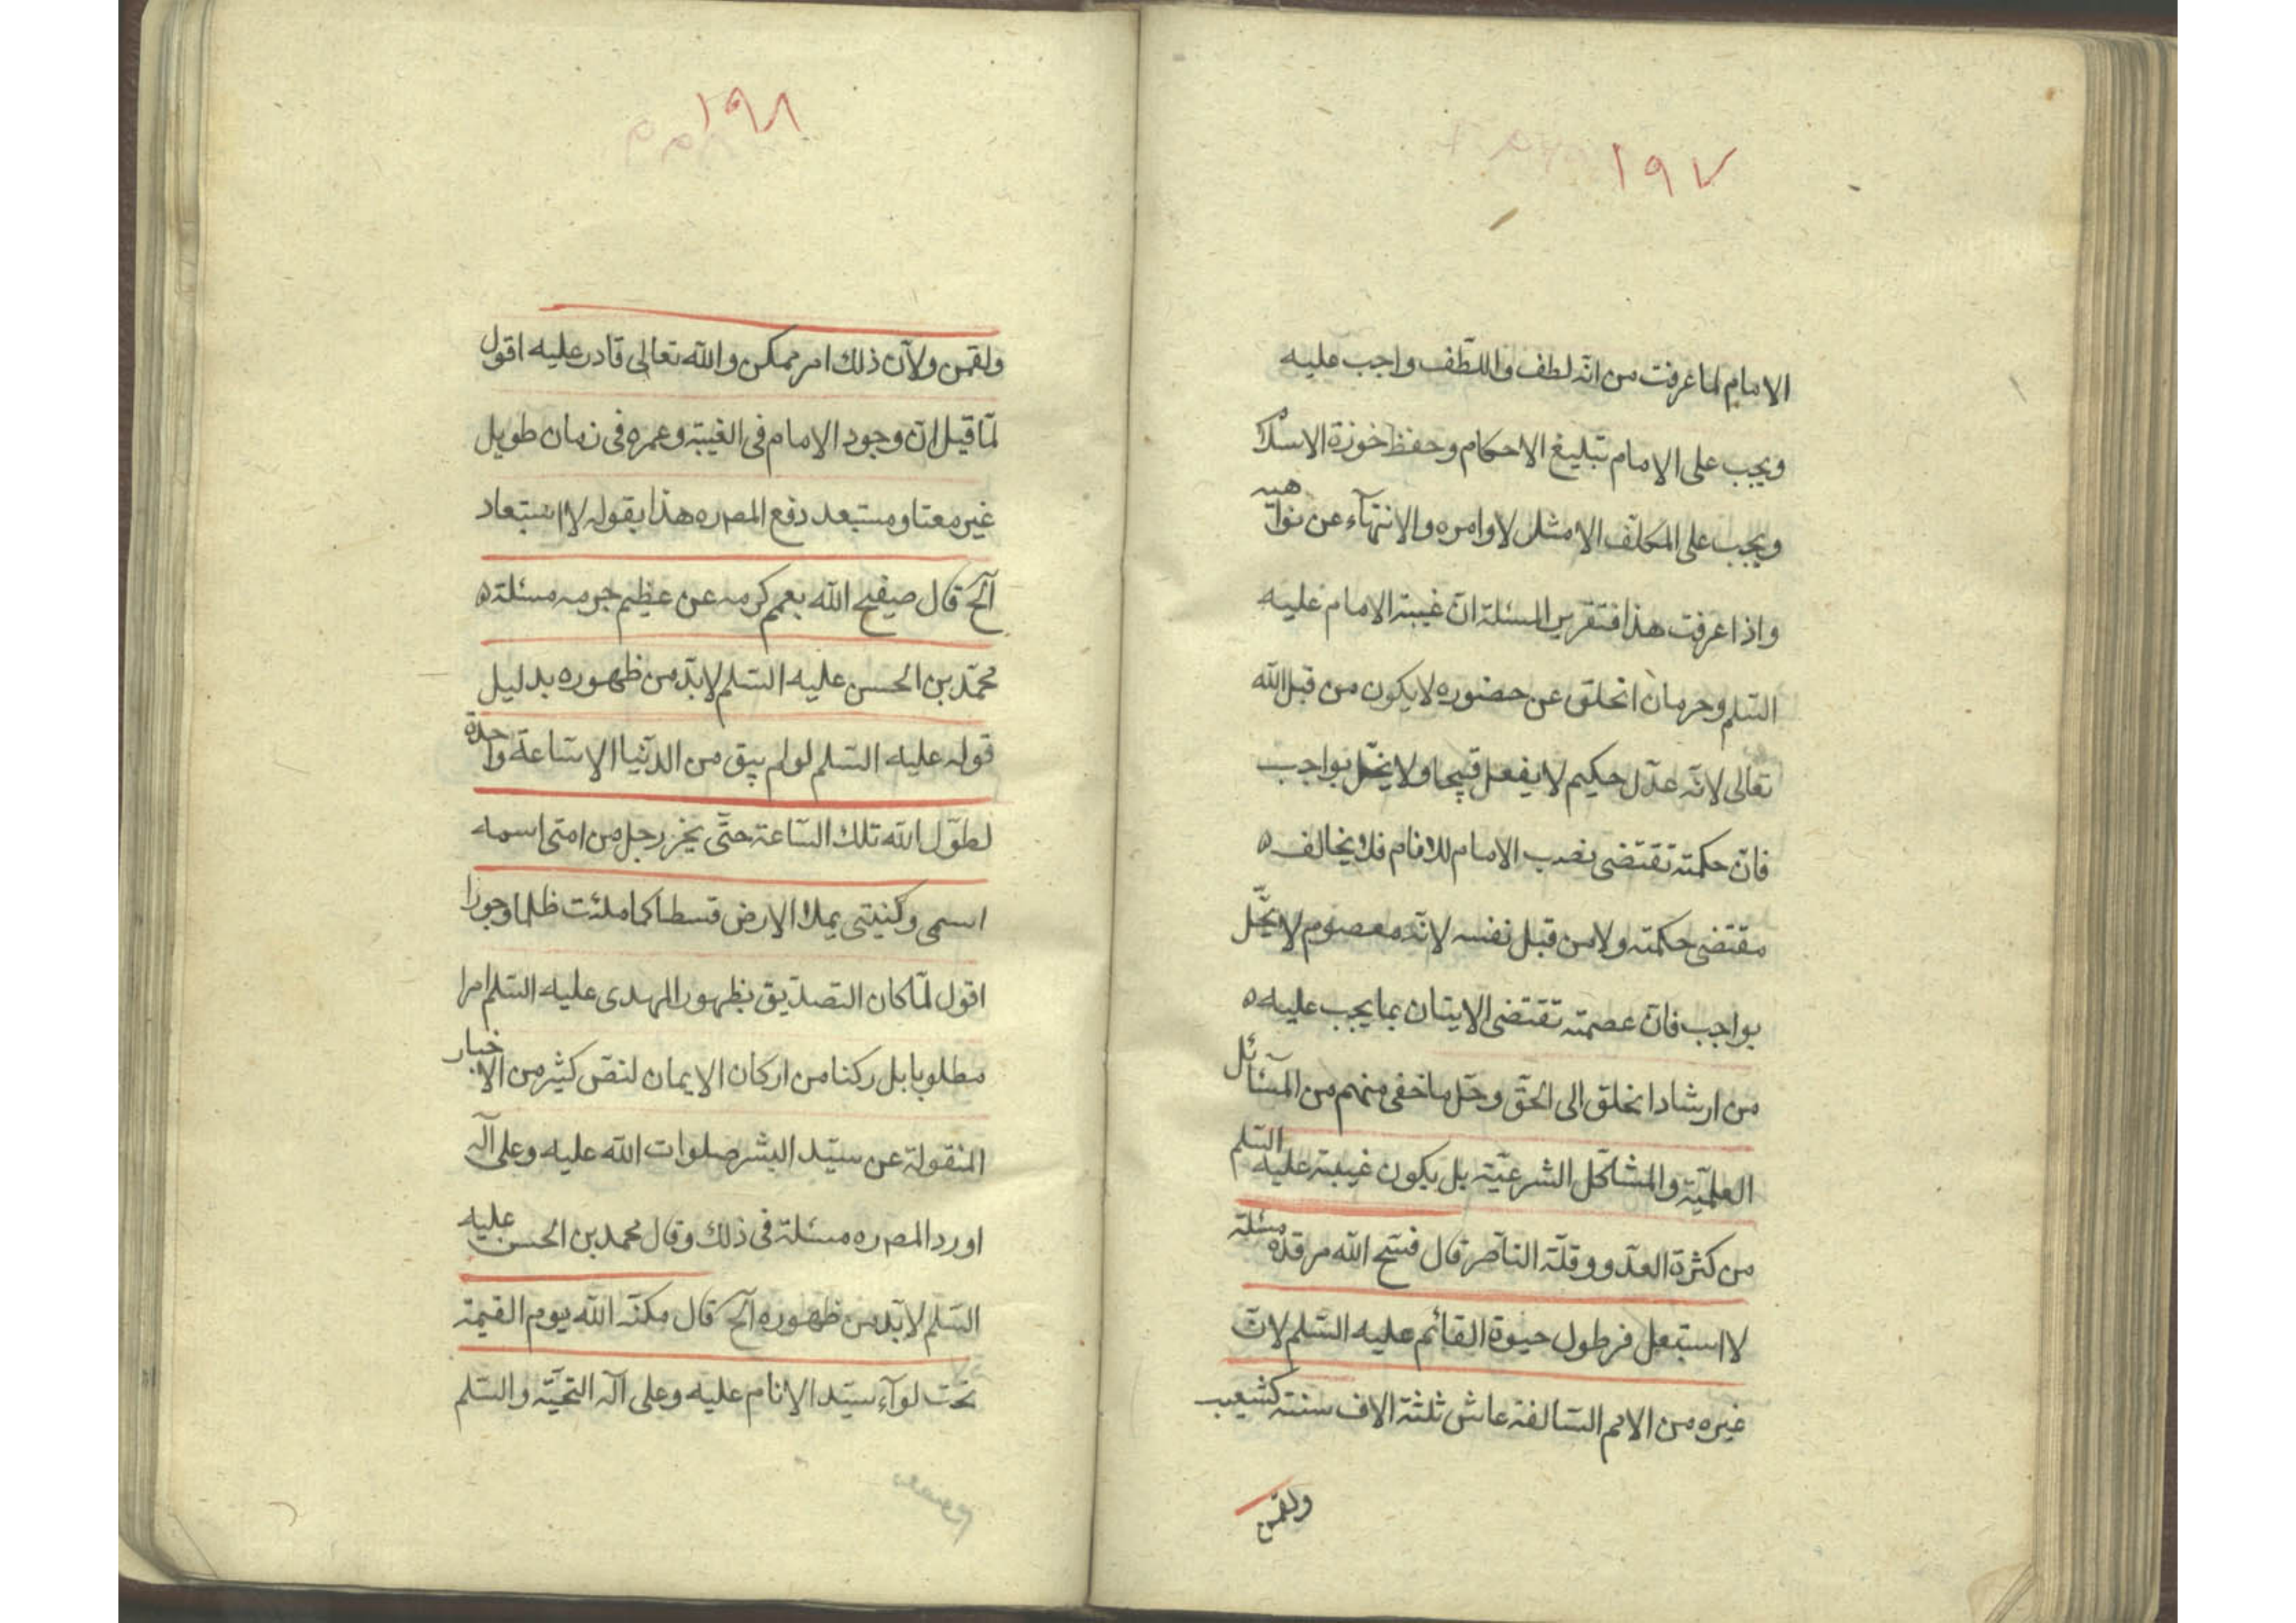 ١٩٧
الامام لما عرفت من انّه لطف واللّطف واجب عليه
ويجب على الامام تبليغ الاحكام وحفظ خوزة الاسلا
ويجب على المكلّف الامثتل لاوامره والانتهآء عن نواهيه
واذا عرفت هذا فتقرير المسئلة انّ غيبة الامام عليه
السّلم وحرمان الخلق عن حضوره لا يكون من قبل الله
تعالى لانّه عدل حكيم لا يفعل قبيحا ولا يخّل بواجب
فانّ حكمته تقتضى نصب الامام للانام فلا يخالف ه
مقتضى حكمته ولا من قبل نفسه لانّه معصوم لا يخّل
بواجب فانّ عصمته تقتضى الايتان بما يجب عليه ه
من ارشاد الخلق الى الحقّ وحّل ما خفى منهم من المسآئل
العلميّة والمشاكل الشرعيّة بل يكون غيبة عليه السّلم
من كثرة العدّو وقلّة النّاصر قال فسّح الله مرقده مسئلة
لا استبعل فرطول حيوة القائم عليه السّلم لانّ
غيره من الامم السّالفة عاش ثلثة الاف سنة كشعيب
ولقمن
١٩٨
ولقمن ولانّ ذلك امر ممكن والله تعالى قادر عليه اقول
لمّا قيل انّ وجود الامام فى الغيبة وعمره فى زمان طويل
غير معتاد ومستبعد دفع المصره هذا بقوله لا استبعاد
آلخ قال صيفح الله بعمم كرمه عن عظيم جرمه مسئلة ه
محمّد بن الحسن عليه السّلم لابدّ من ظهوره بدليل
قوله عليه السّلم لو لم يبق من الدّنيا الا ساعة واحدة
لطوّل الله تلك السّاعة حتّى يخر رجل من امتى اسمه
اسمى وكنيته كنيتى يملا الارض قسطا كما ملئت ظلما وجورا
اقول لمّا كان التصديق بظهور المهدى عليه السّلم امرا
مطلوبا بل ركنا من اركان الايمان لنصّ كثير من الاخبار
المنقولة عن سيّد البشر صلوات الله عليه وعلى آله
اورد المصره مسئلة فى ذلك وقال محمد بن الحسن عليه
السّلم لابدّ من ظهوره آلخ قال مكنّه الله يوم القيمة
تحت لوآء سيّد الانام عليه وعلى آله التحيّة والسّلم